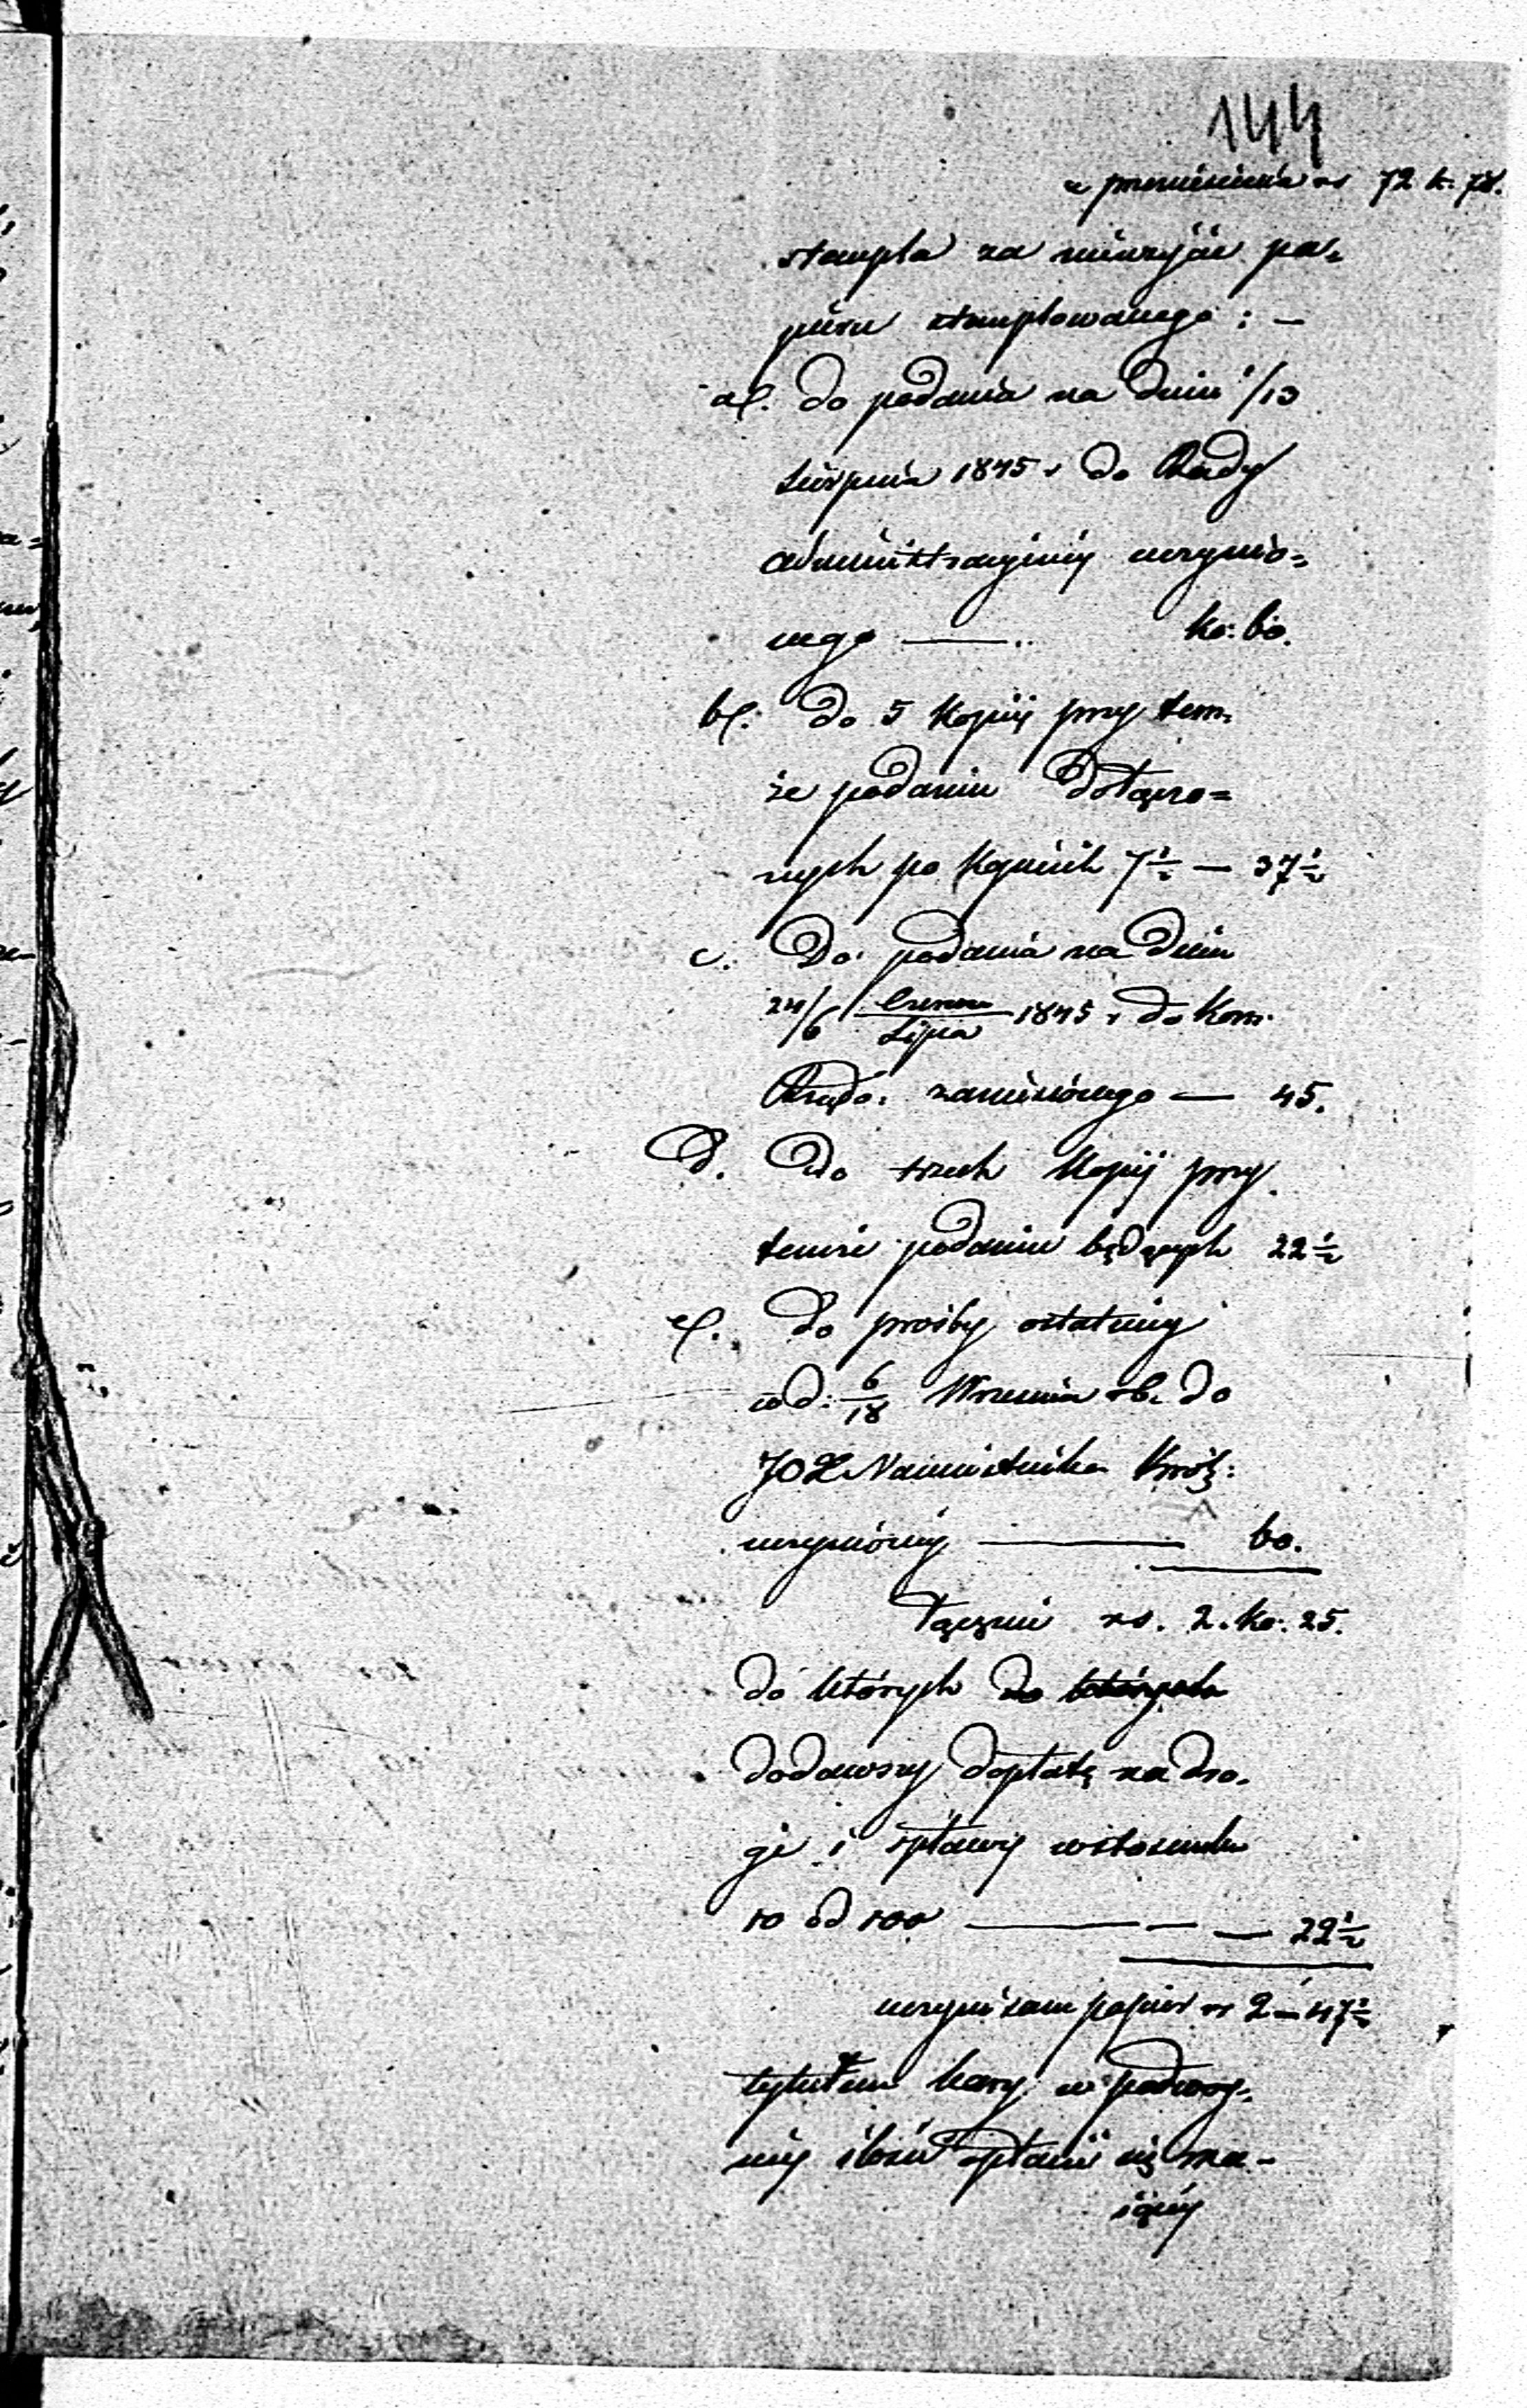 144
z przeniesienia rs 72 k. 78.
stempla za nieużycie pa-
pieru stemplowanego : –
a/. do podania na dniu 1/13
Sierpnia 1845 r do Rady
Administracyjnéj uczynio=
nego —— .. ko: 60.
b/. do 5 kopiij przy tem-
że podaniu dołączo=
nych po kopiéik 7½ — 37½
c. Do podania na dniu
24/6 Czerwca/Lipca 1845 r do Kom.
Rządo: zaniesionego — 45.
d. do trzech kopij przy
temże podaniu będących 22½
e/. do prośby ostatniéj
w d: 6/18 Września rb. do
JOX Namiestnika Król:
uczynionéj —— 60.
Łącznie rs. 2. ko: 25.
do których do których
dodawszy dopłatę na dro-
gi i spławy w stosunku
10 od 100 — — — 22½
uczyni sam papier rs 2 – 47½
tytułem kary w podwoy-
néj ilości opłacić się ma-
iącéj